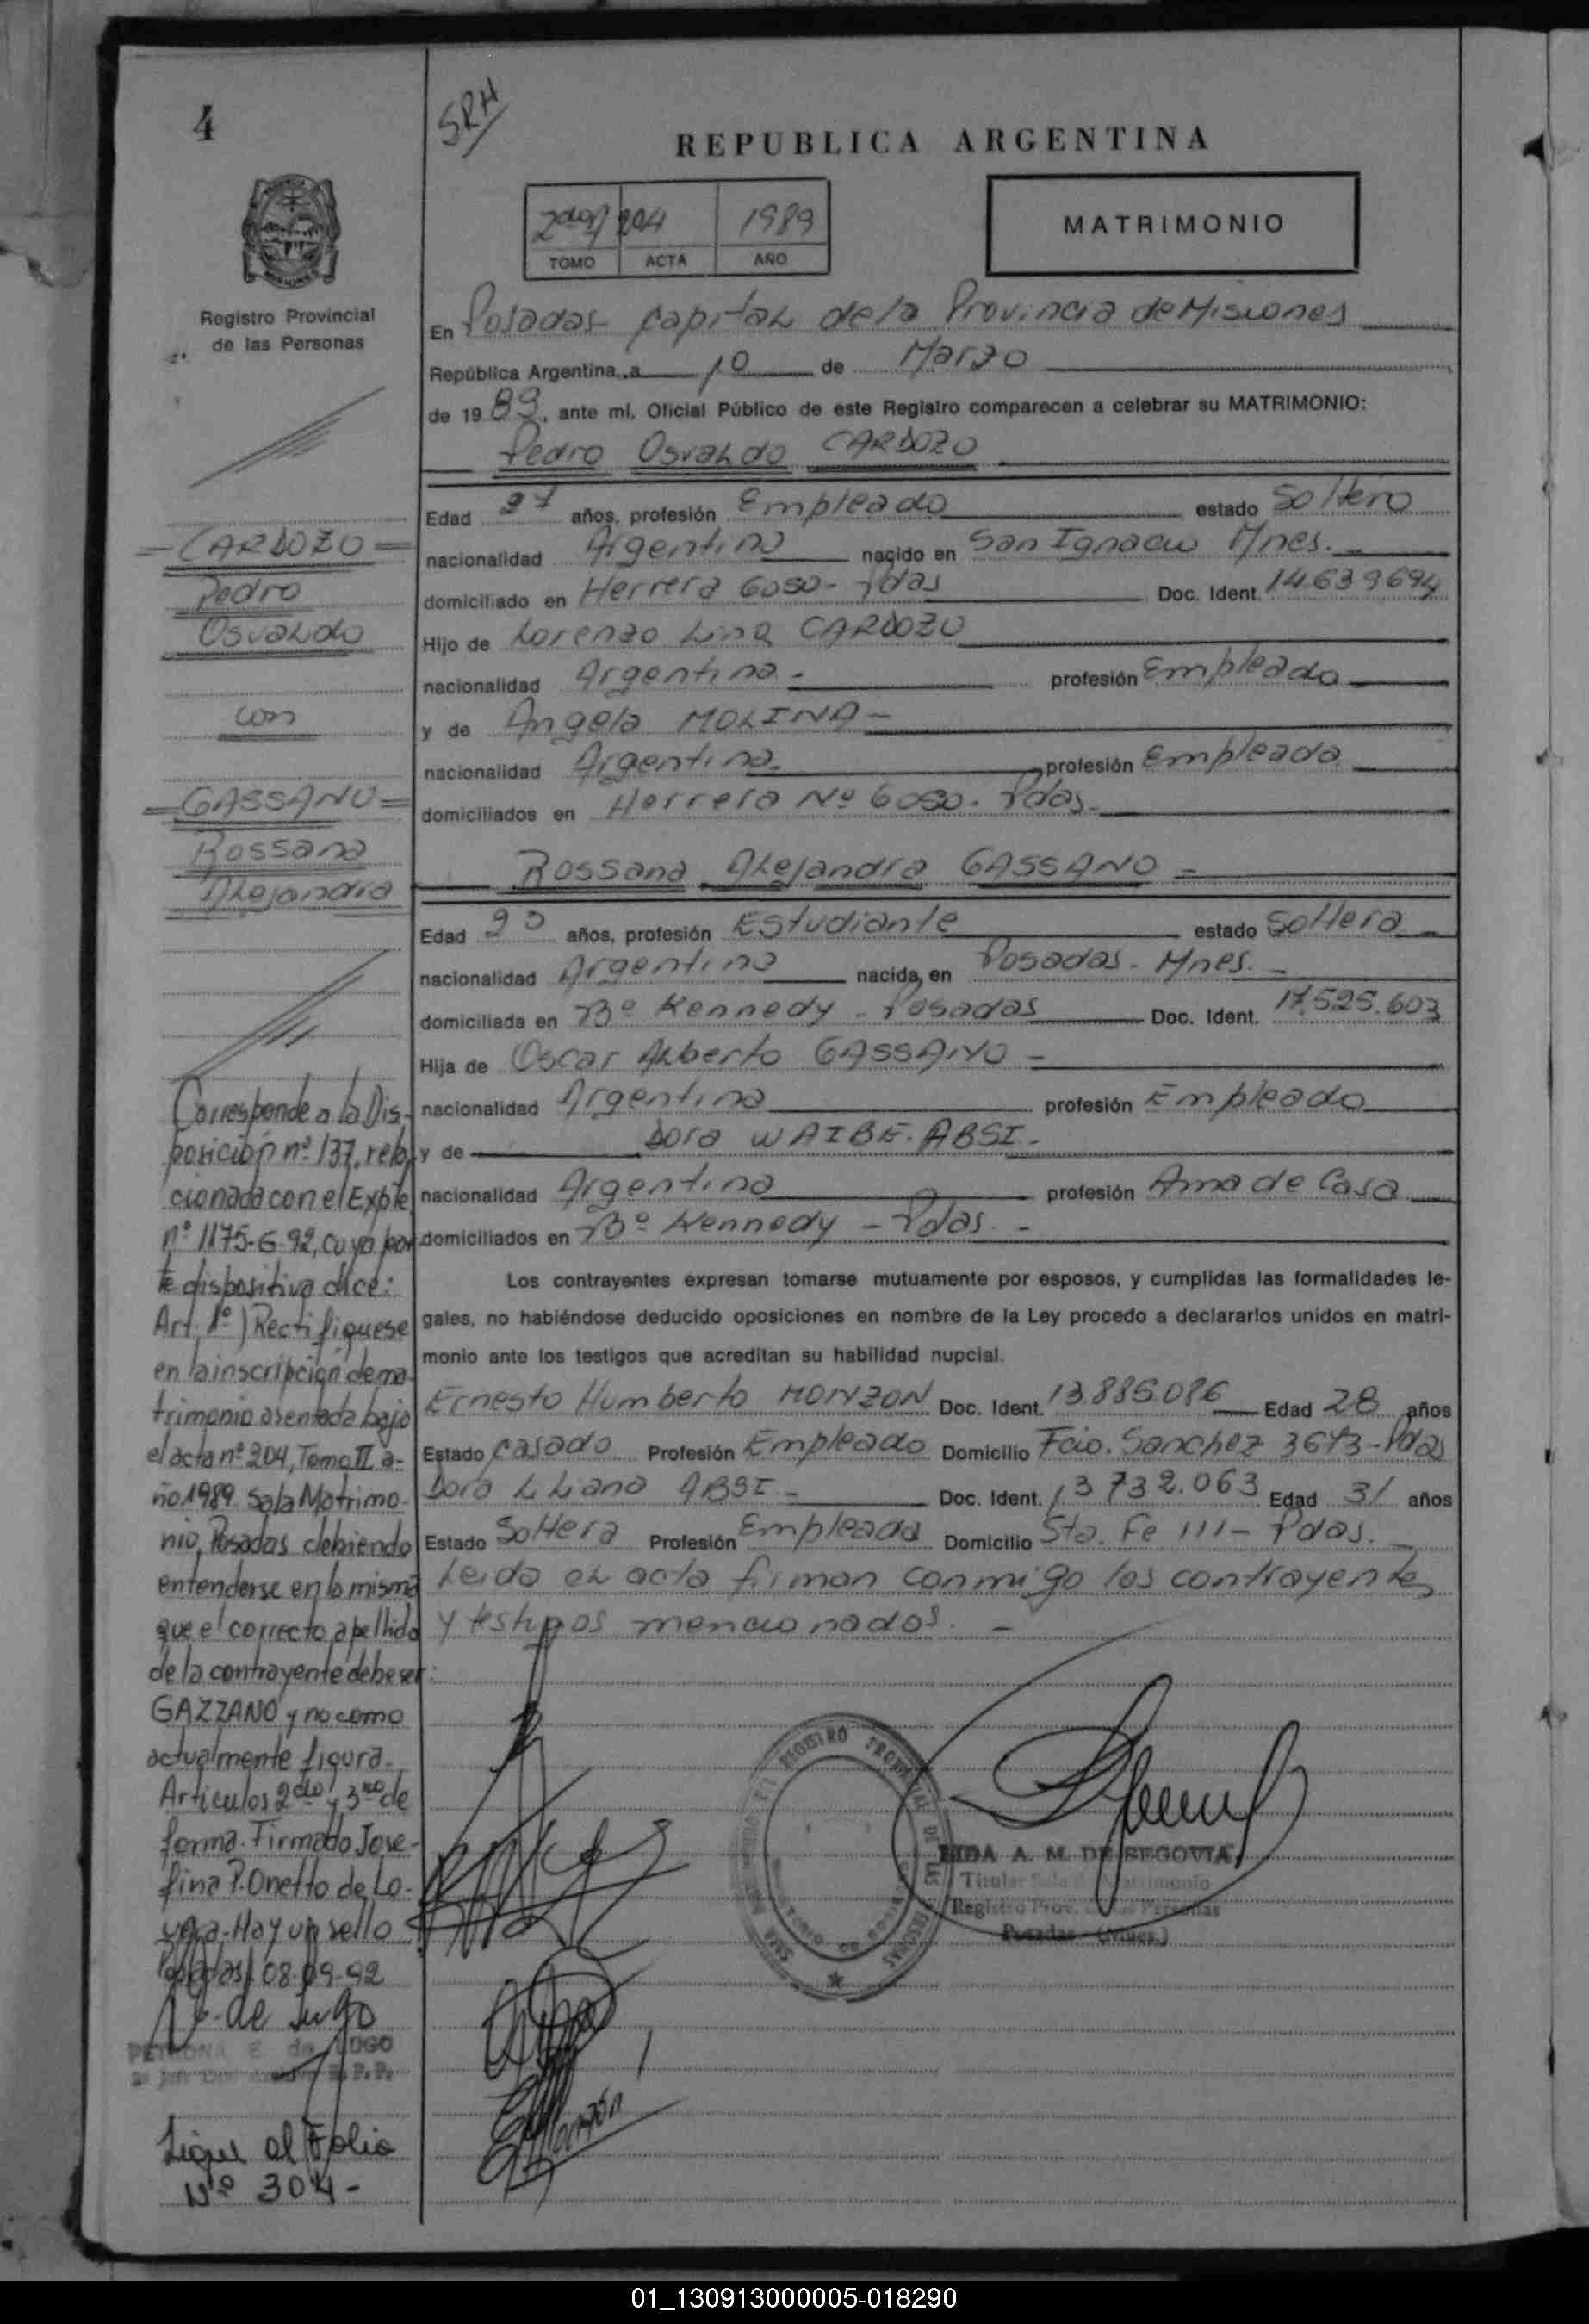 4
SRH
REPUBLICA ARGENTINA
2do 204 1989
TOMO ACTA AÑO
MATRIMONIO
Registro Provincial
de las Personas
En Posadas capital de la Provincia de Misiones
República Argentina, a 10 de Marzo
de 1989, ante mí, Oficial Público de este Registro comparecen a celebrar su MATRIMONIO:
Pedro Osvaldo CARDOZO
Edad 27 años, profesión Empleado estado Soltero
nacionalidad Argentino nacido en San Ignacio Mnes.
domiciliado en Herrera 6050 - Pdas Doc. Ident. 14.639694
Hijo de Lorenzo Lino CARDOZO
nacionalidad Argentina - profesión Empleado
y de Angela MOLINA -
nacionalidad Argentina profesión Empleada
domiciliados en Herrera Nº 6050. Pdas.
Rossana Alejandra GASSANO -
Edad 23 años, profesión Estudiante estado Soltera
nacionalidad Argentina nacida en Posadas - Mnes. -
domiciliada en Bº Kennedy - Posadas Doc. Ident. 17.525.603
Hija de Oscar Alberto GASSANO -
nacionalidad Argentina profesión Empleado
y de Dora WAIBE. ABSI.
nacionalidad Argentina profesión Ama de Casa
domiciliados en Bº Kennedy - Pdas. -
Los contrayentes expresan tomarse mutuamente por esposos, y cumplidas las formalidades le-
gales, no habiéndose deducido oposiciones en nombre de la Ley procedo a declararlos unidos en matri-
monio ante los testigos que acreditan su habilidad nupcial.
Ernesto Humberto MONZON Doc. Ident. 13.886.086 Edad 28 años
Estado Casado Profesión Empleado Domicilio Fcio. Sanchez 3673 - Pdas
Dora Liliana ABSI - Doc. Ident. 13 732.063 Edad 31 años
Estado Soltera Profesión Empleada Domicilio Sta. Fe 111 - Pdas.
Leida el acta firman conmigo los contrayentes
y testigos mencionados. -
=CARDOZO=
Pedro
Osvaldo
con
=GASSANO=
Rossana
Alejandra
Corresponde a la Dis-
posición nº 137, rela-
cionada con el Expte
nº 1175-G-92, cuya par-
te dispositiva dice:
Art. 1º) Rectifíquese
en la inscripción de ma-
trimonio asentada bajo
el acta nº 204, Tomo II a-
ño 1989 Sala Matrimo-
nio, Posadas debiendo
entenderse en la misma
que el correcto apellido
de la contrayente debe ser:
GAZZANO y no como
actualmente figura.
Artículos 2do y 3ro de
forma. Firmado Jose-
fina P. Onetto de Lo-
Hay un sello
Posadas, 08-09-92
de Lugo
PETRONA E de LUGO
Sigue al Folio
Nº 304-
REGISTRO PROVINCIAL DE LAS PERSONAS
LIDA A. M. DE SEGOVIA
Titular Sala Matrimonio
Registro Prov. de las Personas
Posadas (Mnes.)
Monzón
01_130913000005-018290